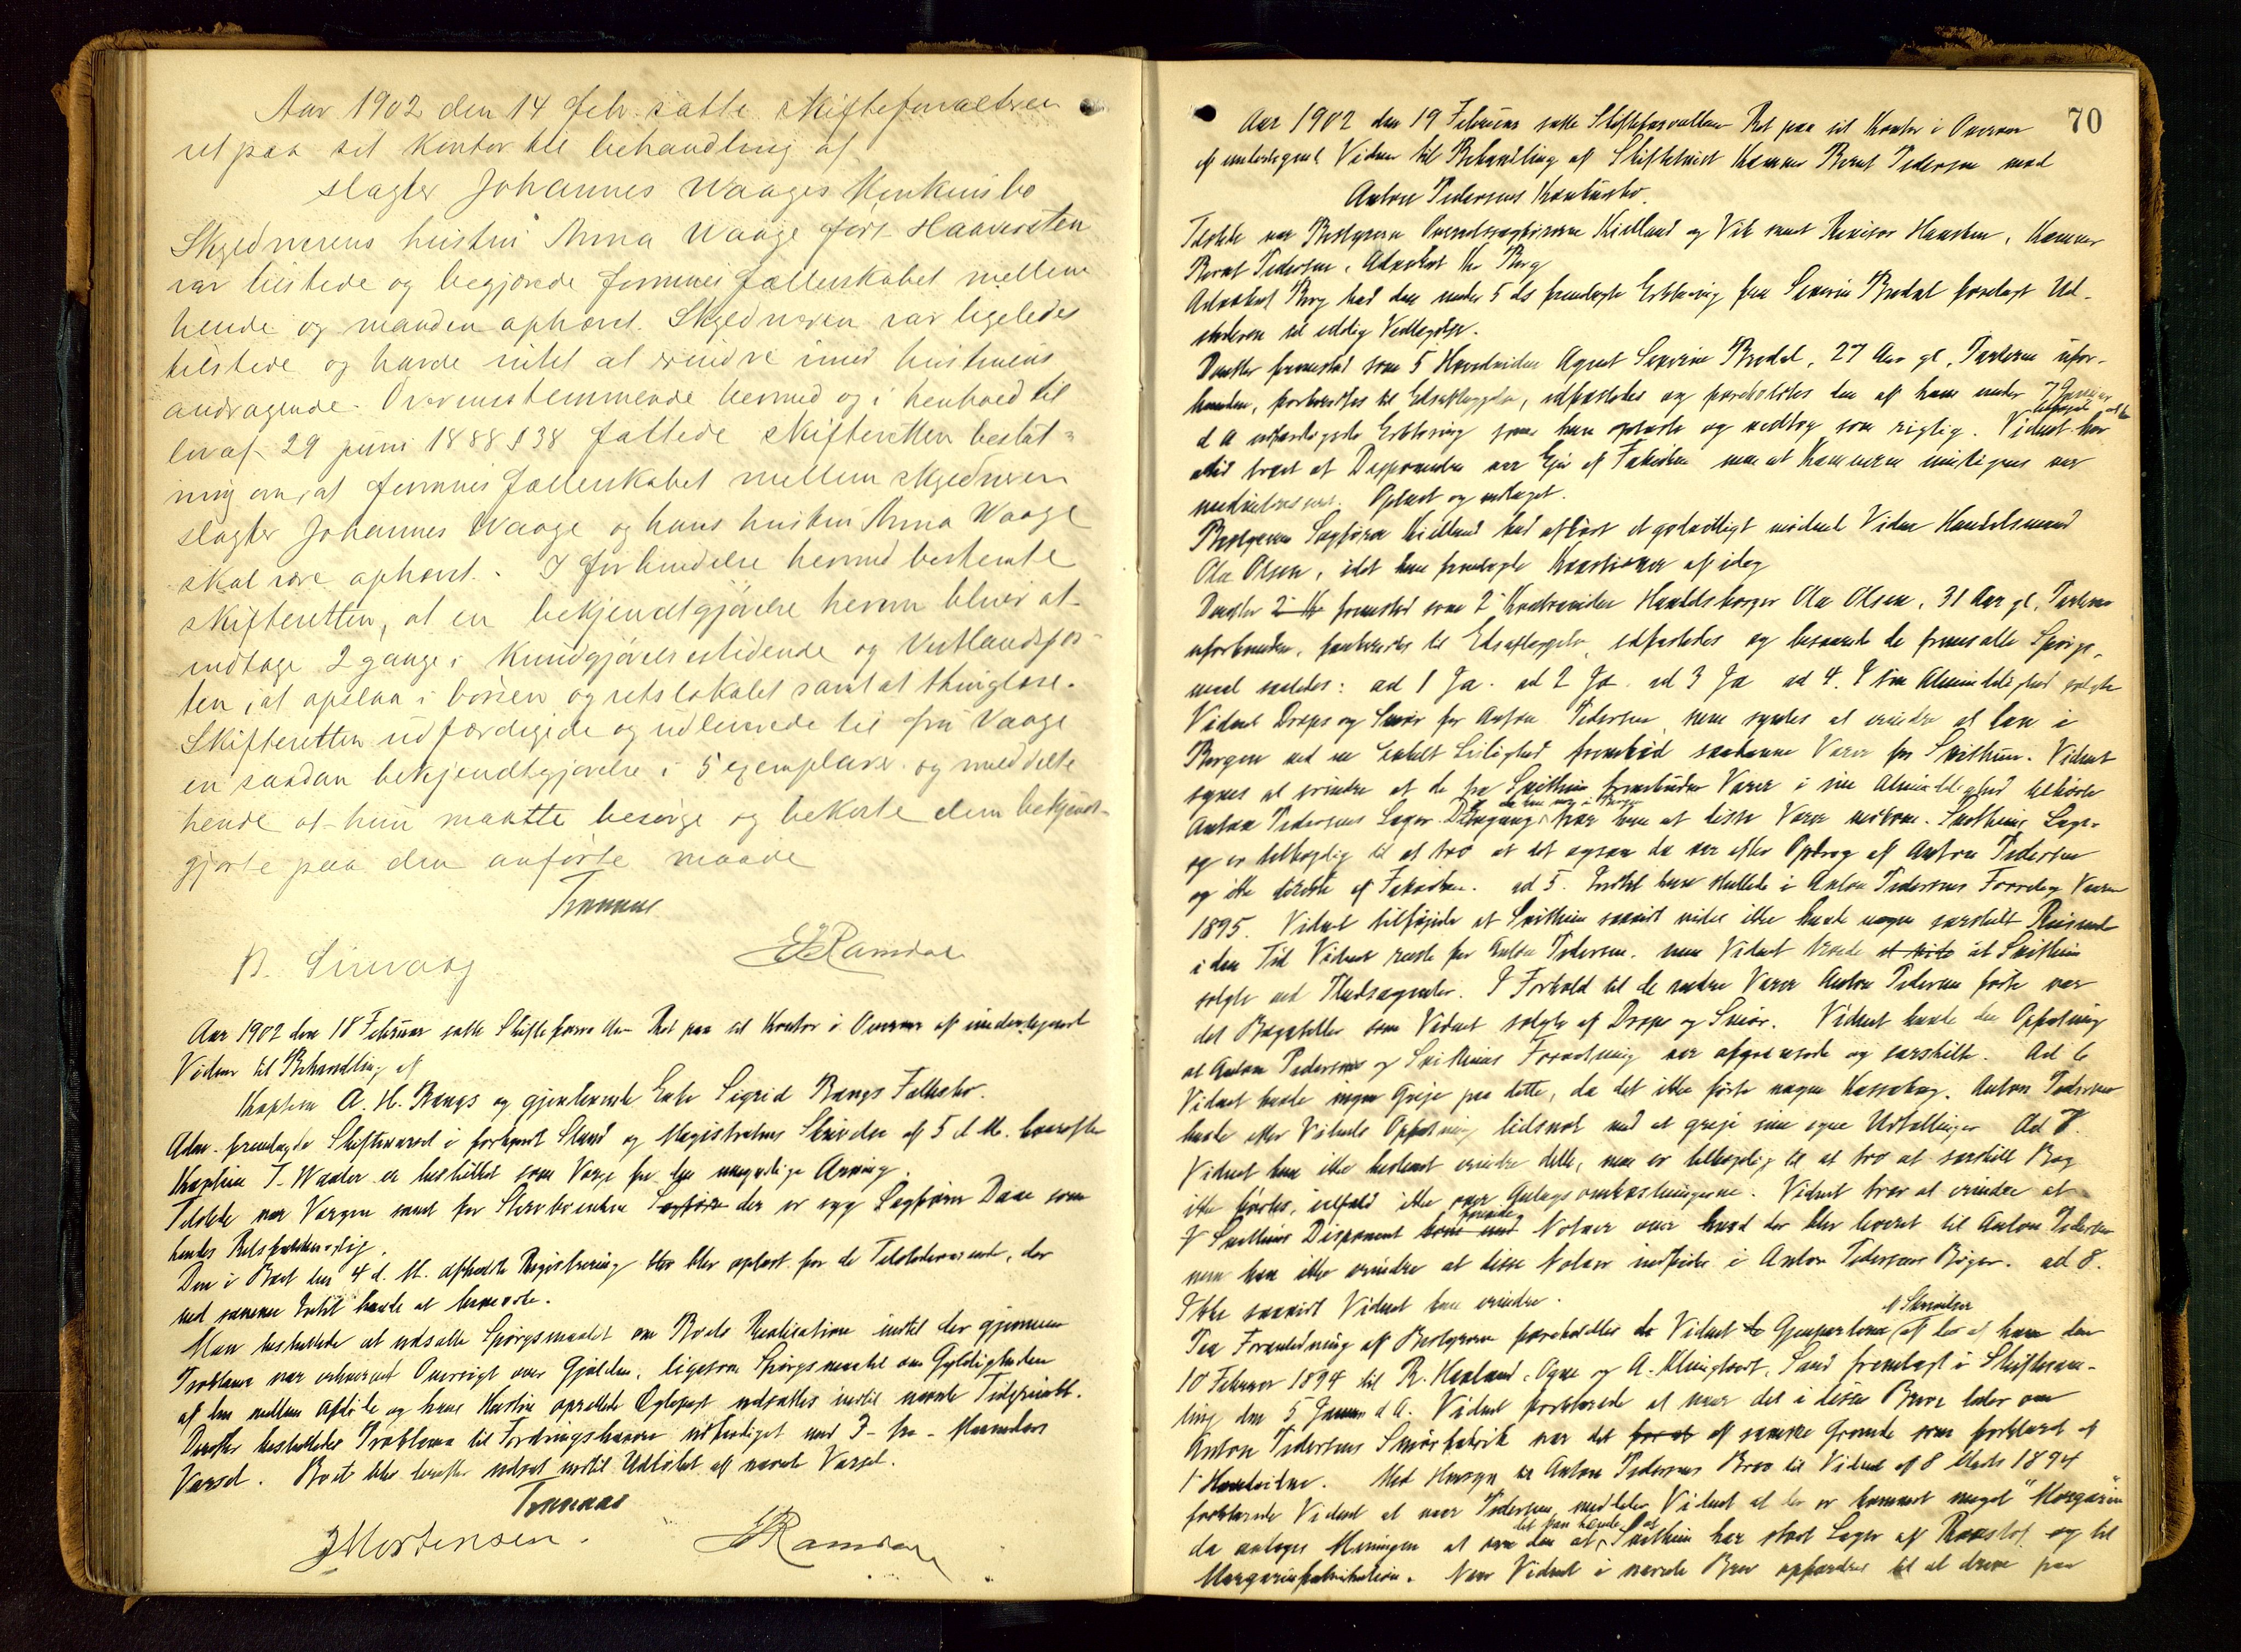 Aar 1902 den 14 Feb. satte skifteforvalteren
ret paa sit kontor til behandling af
slagter Johannes Waages Konkursbo
Skyldnerens hustru Anna Waage født Haaversten
var tilstede og begjærede formuesfællesskabet mellem
hende og manden ophævet. Skyldneren var ligeledes
tilstede og havde intet at erindre imod hustruens
andragende. Overensstemmende hermed og i henhold til
lov af 29 juni 1888 § 38 fattede skifteretten beslut-
ning om, at formuesfællesskabet mellem skyldneren
slagter Johannes Waage og hans hustru Anna Waage
skal være ophævet. I forbindelse hermed bestemte
skifteretten, at en bekjendtgjørelse herom bliver at
indtage 2 gange i Kundgjørelsestidende og Vestlandspos-
ten, at opslaa i børsen og retslokalet samt at thinglæse.
Skifteretten udfærdigede og udleverede til fru Vaage
en saadan bekjendtgjørelse i 5 exemplarer og meddelte
hende at hun maatte besørge og bekoste dem bekjendt-
gjorte paa den anførte maade
B. Sirevaag
E Ramdal
Aar 1902 den 18 Februar satte Skifteforvalteren Ret paa sit Kontor i Overvær af undertegnede
Vidner til Behandling af
Kaptein A. H. Bangs og gjenlevende Enke Sigrid Bangs Fællesbo.
Adm. fremlagde Skiftevarsel i forkyndt Stand og Magistratens Skrivelse af 5 d. M. hvorefter
Kaptein T. Waaler er beskikket som Værge for den umyndige Arving.
Tilstede var Værgen samt for Stervboenken Sagfører der er syg Sagfører Daae som
hendes Retsfuldmægtig.
Den i Boet den 4 d. M. afholdte Registrering blev oplæst for de Tilstedeværende, der
ved samme Intet havde at bemærke.
Man besluttede at udsætte Spørgsmaalet om Boets Realisation indtil der gjennem
Proklama var erhvervet Oversigt over Gjælden, ligesom Spørgsmaalet om Gyldigheden
af den mellem Afdøde og hans Hustru oprettede Ægtepagt udsattes indtil nævnte Tidspunkt.
Derefter besluttedes Proklama til Fordringshavere udfærdiget med 3 - tre - Maaneders
Varsel. Boet blev derefter udsat indtil Udløbet af nævnte Varsel.
J Mortensen.
E Ramdal
70
Aar 1902 den 19 Februar satte Skifteforvalteren Ret paa sit Kontor i Overvær
af undertegnede Vidner til Behandling af Skiftetvist Kæmner Bernt Pedersen mod
Anton Pedersens Konkursbo.
Tilstede var Bestyrerne Overretssagførerne Kielland og Vik samt Revisor Hansken, Kæmner
Bernt Pedersen, Advokat Berg
Advokat Berg bad den under 5 ds fremlagte Erklæring fra Severin Bredal forelagt Ud-
stederen til edelig Vedtagelse.
Derefter fremstod som 5 Hovedvidne Agent Severin Bredal, 27 Aar gl., Parterne ufor-
bunden, forberedtes til Edsaflæggelse, edfæstedes og foreholdtes den af ham under 7 Januar
d A udfærdigede Erklæring som han oplæste og vedtog som rigtig. Vidnet har
altid troet at Disponenten var Ejer af Fabriken men at Kæmneren muligens var
medinteresseret. Oplæst og vedtaget.
Bestyreren Sagfører Kielland bad afhørt et godvilligt mødende Vidne Handelsmand
Ola Olsen, idet han fremlagde Kvæstioner af idag
Derefter fremstod som 2 Kontravidne Handelsborger Ola Olsen, 31 Aar gl, Parterne
uforbunden, forberedtes til Edsaflæggelse, edfæstedes og besvarede de fremsatte Spørgs-
maal saaledes: ad 1 Ja. ad 2 Ja. ad 3 Ja ad 4. I sin Almindelighed solgte
Vidnet Drops og Smør for Anton Pedersen, men synes at erindre at han i
Bergen ved en enkelt Leilighed frembød saadanne Varer for Svithun. Vidnet
synes at erindre at de fra Svithun frembudne Varer i sin Almindelighed tilhørte
Anton Pedersens Lager. Dengang tror han at disse Varer Svithuns Lager
og er tilbøjelig til at tro at det ogsaa da var efter Opdrag af Anton Pedersen
og ikke direkte af Fabriken. ad 5. Indtil han sluttede i Anton Pedersens Forretning Vaaren
1895. Vidnet tilføjede at Svithun saavidt vides ikke havde nogen særskilt Reisende
i den Tid Vidnet reiste for Anton Pedersen, men Vidnet troede at Svithun
solgte ved Stedsagenter. I Forhold til de andre Varer Anton Pedersen førte var
det Bagateller som Vidnet solgte af Drops og Smør. Vidnet havde den Opfatning
at Anton Pedersens og Svithuns Forretning var afgrænsede og særskilte. Ad 6
Vidnet havde ingen Greje paa dette, da det ikke førte nogen Kassabog. Anton Pedersen
havde efter Vidnets Opfatning tidsnok med at greje sine egne Udtællinger. Ad 7.
Vidnet kan ikke bestemt erindre dette, men er tilbøjelig til at tro at særskilt Bog
ikke førtes, ialfald ikke over Anlægsomkostningerne. Vidnet tror at erindre at
Svithuns Disponent Notaer over hvad der blev leveret til Anton Pedersen
men kan ikke erindre at disse Notaer indførtes i Anton Pedersens Bøger. ad 8.
Ikke saavidt Vidnet kan erindre.
Paa Foranledning af Bestyreren foreholdtes Vidnet Gjenparterne af Skrivelser af ham den
10 Februar 1894 til R. Haaland, Ogne og A. Klingsort, Sand fremlagt i Skiftesam-
ling den 5 Januar d A. Vidnet forklarede at naar det i disse Breve taler om
Anton Pedersens Smørfabrik var det af samme Grunde som forklaret af
1 Hovedvidne. Med Hensyn til Anton Pedersens Brev til Vidnet af 8 Marts 1894
forklarede Vidnet at naar Pedersen meddeler Vidnet at der er kommet meget "Margarin"
da antages Meningen at være den at Svithun har stort Lager af Raastof og til
Margarinfabrikation. Naar Vidnet i nævnte Brev opfordres til at drive paa